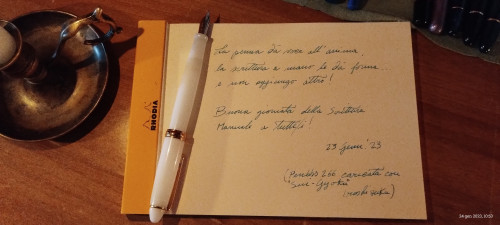 La penna dà voce all'anima,
la scrittura a mano le dà forma
e non aggiungo altro!
Buona giornata della Scrittura
Manuale a tutti!
23 genn. '23
(Parallel 206 caricata con
"Sui-Gyoku"
RHODIA
24 gen 2023, 10:50